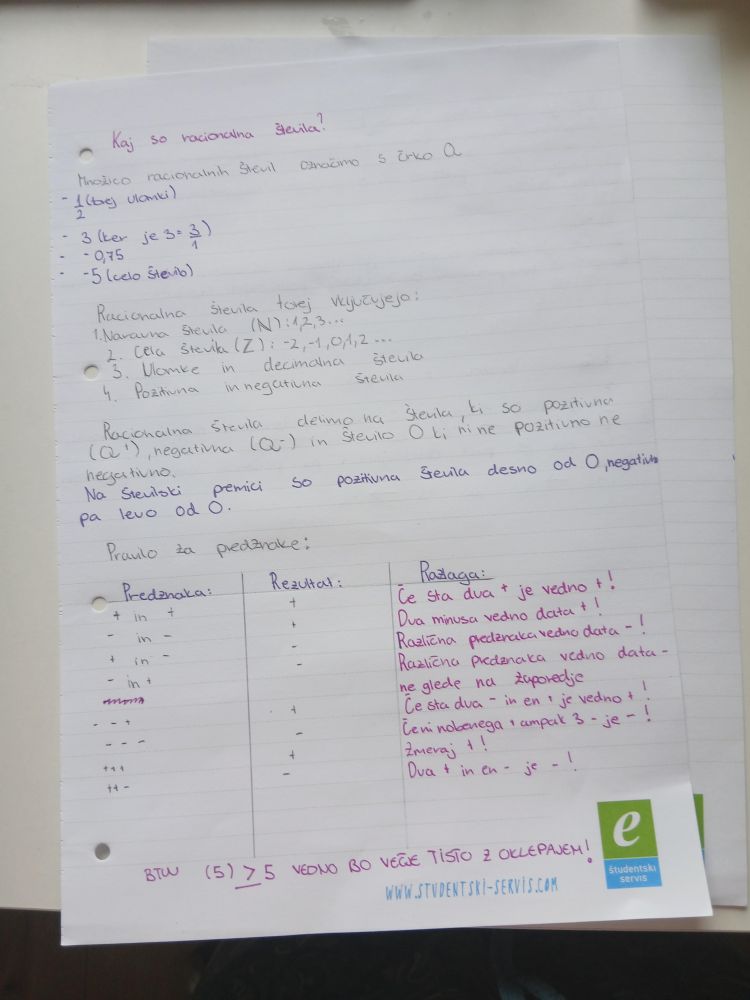 Kaj so racionalna števila?
Množico racionalnih števil označimo s črko Q
- 1/2 (torej ulomki)
- 3 (ker je 3 = 3/1)
- -0,75
- -5 (celo število)
Racionalna števila torej vključujejo:
1. Naravna števila (N): 1,2,3...
2. Cela števila (Z): -2,-1,0,1,2...
3. Ulomke in decimalna števila
4. Pozitivna in negativna števila
Racionalna števila delimo na števila, ki so pozitivna
(Q⁺), negativna (Q⁻) in število 0 ki ni ne pozitivno ne
negativno.
Na številski premici so pozitivna števila desno od 0, negativna
pa levo od 0.
Pravilo za predznake:
Predznaka: Rezultat: Razlaga:
+ in + + Če sta dva + je vedno +!
- in - + Dva minusa vedno data +!
+ in - - Različna predznaka vedno data -!
- in + - Različna predznaka vedno data -
ne glede na zaporedje
- - + + Če sta dva - in en + je vedno +!
- - - - Če ni nobenega + ampak 3 - je -!
+++ + Zmeraj +!
++- - Dva + in en - je -!
BTW (5) ≥ 5 VEDNO BO VEČJE TISTO Z OKLEPAJEM!
e
študentski
servis
WWW.STUDENTSKI-SERVIS.COM